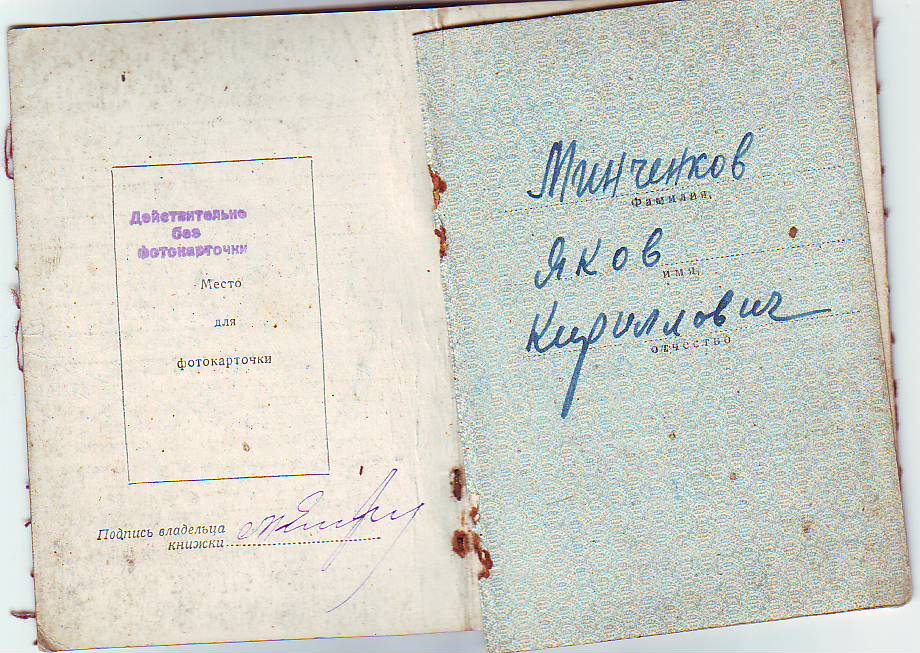 Действительно
без
фотокарточки
Место
для
фотокарточки
Подпись владельца
книжки
Минченков
Фамилия,
Яков
имя,
Кириллович
отчество